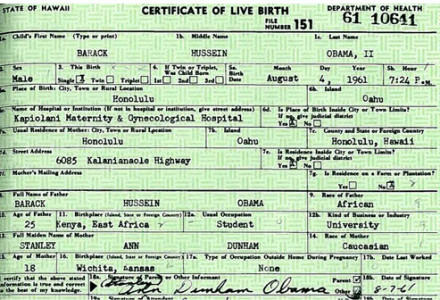 STATE OF HAWAII CERTIFICATE OF LIVE BIRTH DEPARTMENT OF HEALTH
FILE NUMBER 151 61 10641
1a. Child's First Name (Type or print) 1b. Middle Name 1c. Last Name
BARACK HUSSEIN OBAMA, II
2. Sex 3. This Birth 4. If Twin or Triplet, Was Child Born 5a. Birth Date Month Day Year 5b. Hour
Male Single Twin Triplet 1st 2nd 3rd August 4, 1961 7:24 P.M.
6a. Place of Birth: City, Town or Rural Location 6b. Island
Honolulu Oahu
6c. Name of Hospital or Institution (If not in hospital or institution, give street address) 6d. Is Place of Birth Inside City or Town Limits? If no, give judicial district
Kapiolani Maternity & Gynecological Hospital Yes No
7a. Usual Residence of Mother: City, Town or Rural Location 7b. Island 7c. County and State or Foreign Country
Honolulu Oahu Honolulu, Hawaii
7d. Street Address 7e. Is Residence Inside City or Town Limits? If no, give judicial district
6085 Kalanianaole Highway Yes No
7f. Mother's Mailing Address 7g. Is Residence on a Farm or Plantation?
Yes No
8. Full Name of Father 9. Race of Father
BARACK HUSSEIN OBAMA African
10. Age of Father 11. Birthplace (Island, State or Foreign Country) 12a. Usual Occupation 12b. Kind of Business or Industry
25 Kenya, East Africa Student University
13. Full Maiden Name of Mother 14. Race of Mother
STANLEY ANN DUNHAM Caucasian
15. Age of Mother 16. Birthplace (Island, State or Foreign Country) 17a. Type of Occupation Outside Home During Pregnancy 17b. Date Last Worked
18 Wichita, Kansas None
I certify that the above stated information is true and correct to the best of my knowledge. 18a. Signature of Parent or Other Informant Parent Other 18b. Date of Signature
Ann Dunham Obama 8-7-61